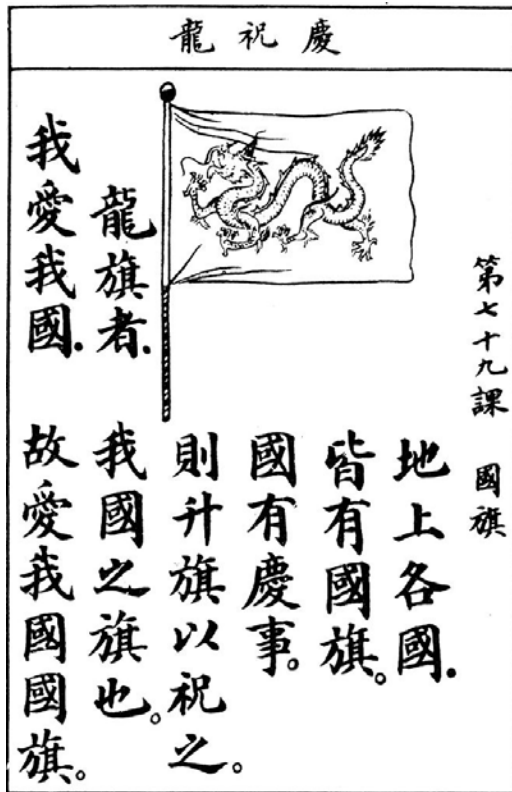 慶祝龍
第七十九課 國旗
地上各國.
皆有國旗。
國有慶事。
則升旗以祝之。
龍旗者.我國之旗也。
我愛我國.故愛我國國旗。